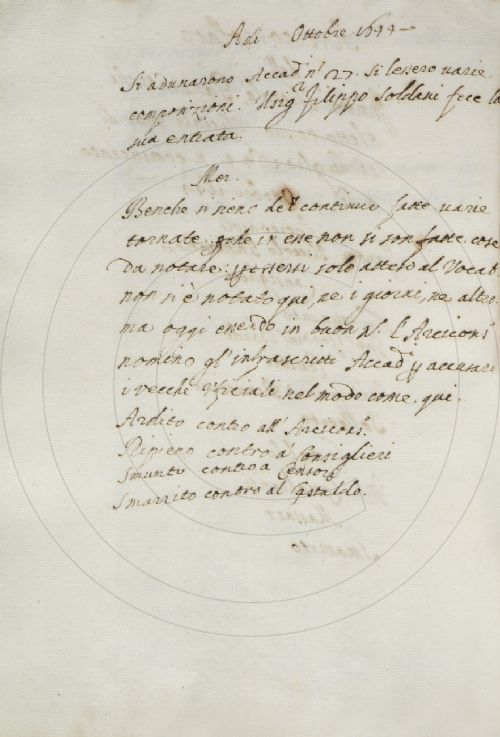 Adi Ottobre 1644
Si adunarono Accad.i n.o 27. Si lessero varie
composizioni. Il sig.r Filippo Soldani fece la
sua entrata.
Mer.
Benche si sieno del continuo fatte varie
tornate, p.che in esse non si son fatte cose
da notare, p. essersi solo atteso al Vocab.
non si è notato qui, ne i giorni, ne altro.
ma oggi essendo in buon n.o l'Arcicons.o
nominò gl'infrascritti Accad.i p. accusare
i vecchi Uficiali nel modo come qui.
Ardito contro all'Arcicons.o
Ripieno contro a Consiglieri
Smunto contro a Censori
Smarrito contro al Castaldo.